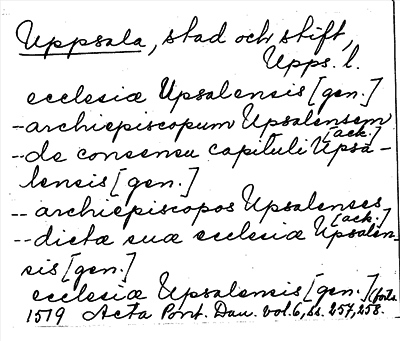 Uppsala, stad och stift,
Upps. l.
ecclesiæ Upsalensis [gen.]
-archiepiscopum Upsalensem
[ack.]
--de consensu capituli Upsa-
lensis [gen.]
-- archiepiscopos Upsalenses
[ack.]
--dictæ suæ ecclesiæ Upsalen-
sis [gen.]
ecclesiæ Upsalensis [gen.] (forts.
1519 Acta Pont. Dan. vol. 6, ss. 257, 258.